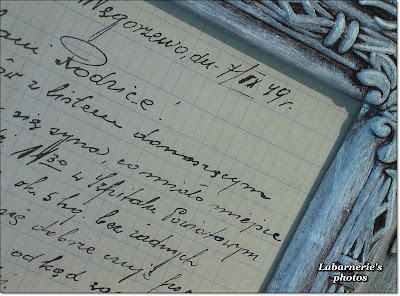 Węgorzewo, dn. 7/VI 49 r.
Rodzice!
z listem donoszącym
się syna, co miało miejsce
11 30 w Szpitalu Powiatowym
ok. 5 kg, bez żadnych
się dobrze czuję
odkąd
Labarnerie's
photos